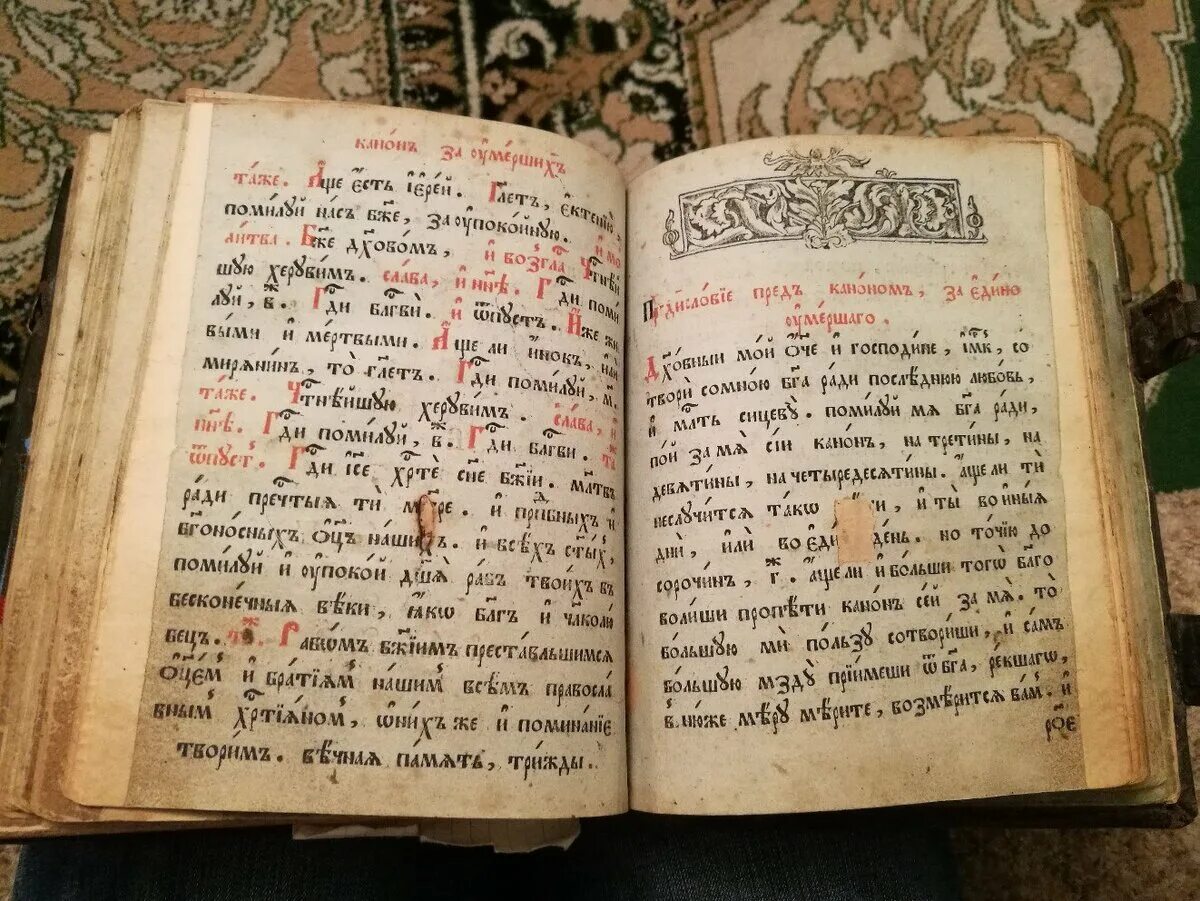 Кано́нъ за ᲂу҆ме́ршихъ
та́же. А҆́ще є҆́сть і҆ере́й. Гл҃етъ, є҆ктенїю̀,
поми́лꙋй на́съ бж҃е, за ᲂу҆поко́йнꙋю. и҆ мо
ли́тва. Бж҃е дх҃ово́мъ, и҆ во́згла. Чтⷭ҇нѣй
шꙋю херꙋви́мъ. сла́ва, и҆ нн҃ѣ. Гдⷭ҇и поми́
лꙋй, в҃ⷤ. Гдⷭ҇и блгⷭ҇вѝ. и҆ ѿпꙋ́стъ. И҆́же жи
вы́ми и҆ ме́ртвыми. А҆́ще ли и҆́нокъ, и҆лѝ
мирѧни́нъ, то̀ гл҃етъ. Гдⷭ҇и поми́лꙋй, м҃.
та́же. Чтⷭ҇нѣ́йшꙋю херꙋви́мъ. сла́ва, и҆
нн҃ѣ. Гдⷭ҇и поми́лꙋй, в҃ⷤ. Гдⷭ҇и блгⷭ҇вѝ.
ѿпꙋ́стъ. Гдⷭ҇и і҆с҃е хрⷭ҇тѐ сн҃е бж҃їи. мл҃твъ
ра́ди пречтⷭ҇ыѧ тѝ мт҃ре. и҆ прпⷣбныхъ и҆
бг҃оно́сныхъ ѻ҆ц҃ъ на́шихъ. и҆ всѣ́хъ ст҃ы́хъ,
поми́лꙋй и҆ ᲂу҆поко́й дш҃ѧ ра́бъ твои́хъ въ
безконе́чныѧ вѣ́ки, ꙗ҆́кѡ бл҃гъ и҆ чл҃колю́
бецъ. та́ⷤ. Рабѡ́мъ бж҃їимъ преста́вльшимсѧ
ѻ҆ц҃е́мъ и҆ бра́тїѧмъ на́шимъ всѣ́мъ правосла́
внымъ хрⷭ҇тїѧ́номъ, ѡ҆ ни́хъ же и҆ помина́нїе
твори́мъ. вѣ́чнаѧ па́мѧть, три́жды.
Предисло́вїе предъ кано́номъ, за є҆ди́но
ᲂу҆ме́ршаго.
Дх҃о́вныи мо́й ѻ҆́ч҃е и҆ господи́не, и҆́мⷬ҇къ, со
творѝ со мно́ю бг҃а ра́ди послѣ́днюю любо́вь,
и҆ млⷭ҇ть сицевꙋ̀. поми́лꙋй мѧ̀ бг҃а ра́ди,
по́й за мѧ̀ сі́и кано́нъ, на трети́ны, на
девѧти́ны, на четыредесѧти́ны. а҆́ще ли тѝ
не слꙋчи́тсѧ та́кѡ, и҆ ты̀ во и҆ны́ѧ
днѝ, и҆лѝ во є҆ди́ де́нь. но то́чїю до
сорочи́нъ, г҃ⷤ. а҆́ще ли и҆ бо́льши тогѡ̀ бл҃го
во́лиши пропѣ́ти кано́нъ се́й за мѧ̀. то̀
бо́льшꙋю мѝ по́льзꙋ сотвори́ши, и҆ са́мъ
бо́льшꙋю мздꙋ̀ прїи́меши ѿ бг҃а, ре́кшагѡ,
в ню́же мѣ́рꙋ мѣ́рите, возмѣ́ритсѧ ва́мъ. и҆